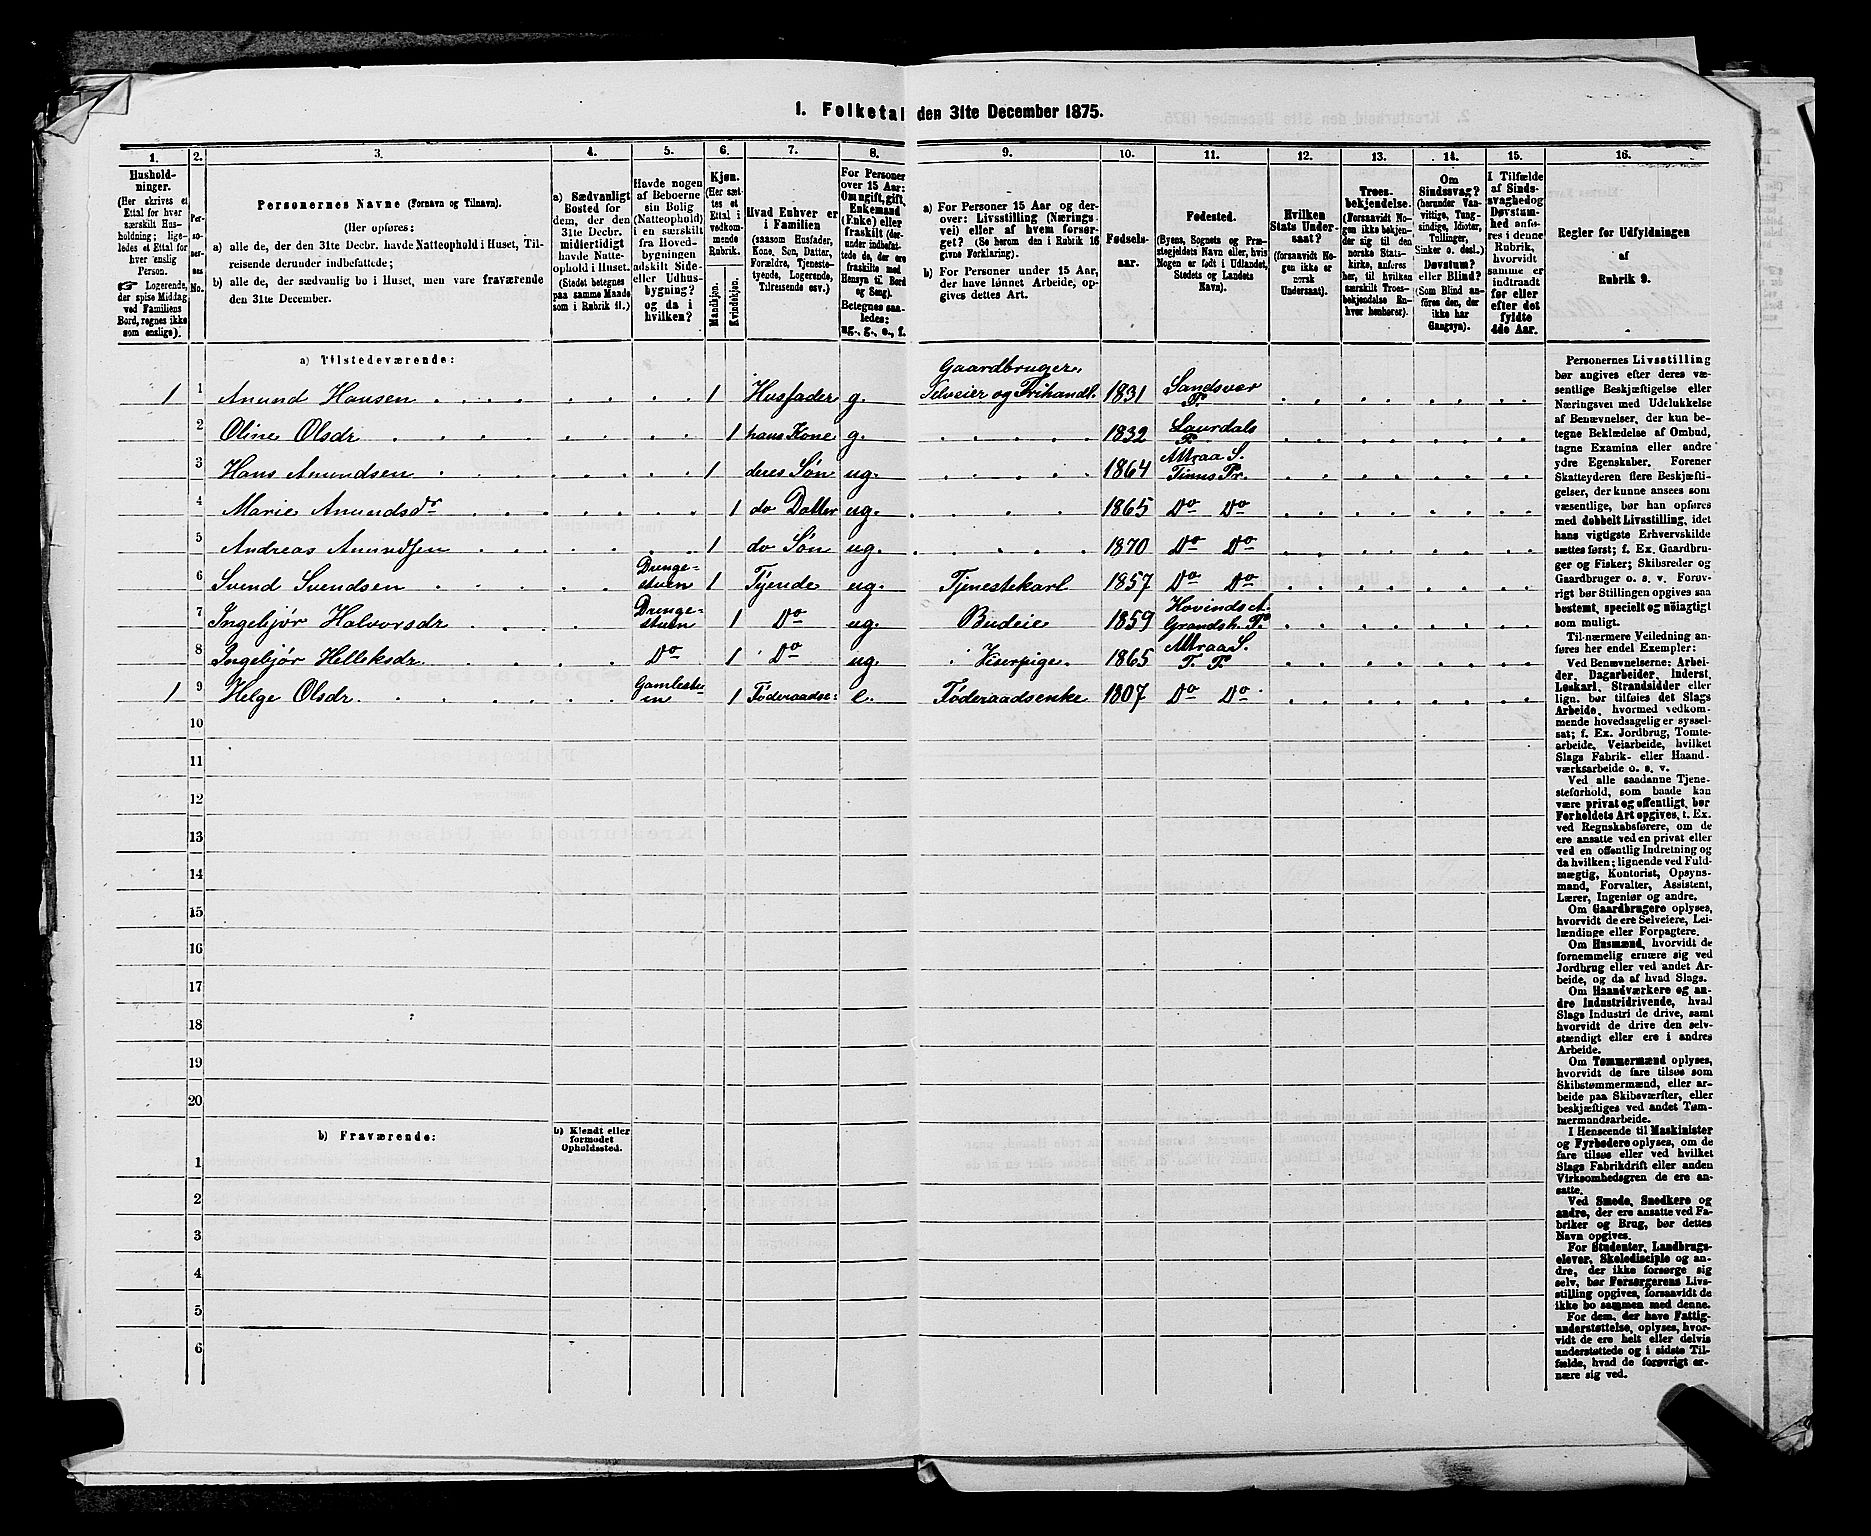 1. Folketal den 31te December 1875.
1. 2. 3. 4. 5. 6. 7. 8. 9. 10. 11. 12. 13. 14. 15. 16.
Hushold-
ninger.
(Her skrives et
Ettal for hver
særskilt Hus-
holdning; lige-
ledes et Ettal
for enslig
Person.
Logerende,
der spise Middag
ved Familiens
Bord, regnes ikke
som enslige).
Per-
so-
ner-
nes
No.
Personernes Navne (Fornavn og Tilnavn).
(Her opføres:
a) alle de, der den 31te Decbr. havde Natteophold i Huset, Til-
reisende derunder indbefattede;
b) alle de, der sædvanlig bo i Huset, men vare fraværende
den 31te December.
a) Sædvanligt
Bosted for
dem, der den
31te Decbr.
midlertidigt
havde Natte-
ophold i Huset.
(Stedet betegnes
paa samme Maade
som i Rubrik 11.)
Havde nogen
af Beboerne
sin Bolig
(Natteophold)
i en særskilt
fra Hoved-
bygningen
adskilt Side-
eller Udhus-
bygning?
og da i
hvilken?
Kjøn.
(Her sæt-
tes et
Ettal i
vedkom-
mende
Rubrik.
Mandkjøn.
Kvindekjøn.
Hvad Enhver er
i Familien
(saasom Husfader,
Kone, Søn, Datter,
Forældre, Tjeneste-
tyende, Logerende,
Tilreisende osv.)
For Personer
over 15 Aar:
Om ugift, gift,
Enkemand
(Enke) eller
fraskilt (der-
under indbefat-
tede de, der ere
fraskilte med
Hensyn til Bord
og Seng).
Betegnes saa-
ledes:
ug., g., e., f.
a) For Personer 15 Aar og der-
over: Livsstilling (Nærings-
vei) eller af hvem forsør-
get? (Se herom den i Rubrik 16
givne Forklaring).
b) For Personer under 15 Aar,
der have lønnet Arbeide, op-
gives dettes Art.
Fødsels-
aar.
Fødested.
(Byens, Sognets og Præ-
stegjeldets Navn eller, hvis
Nogen er født i Udlandet,
Stedets og Landets
Navn).
Hvilken
Stats Under-
saat?
(forsaavidt No-
gen ikke er
norsk
Undersaat).
Troes-
bekjendelse.
(Forsaavidt No-
gen ikke bekjen-
der sig til den
norske Stats-
kirke, anføres
her, til hvilken
særskilt Troes-
bekjendelse En-
hver henhører).
Om
Sindssvag?
(herunder Van-
vittige, Tung-
sindige, Idioter,
Tullinger,
Sinker o. desl.)
Døvstum?
eller Blind?
(Som Blind an-
føres den, der
ikke har
Gangsyn).
I Tilfælde
af Sinds-
svaghed og
Døvstum-
hed anfø-
res i denne
Rubrik,
hvorvidt
samme er
indtraadt
før eller
efter det
fyldte
4de Aar.
Regler for Udfyldningen
af
Rubrik 9.
a) Tilstedeværende:
1 1 Amund Hansen 1 Husfader g. Gaardbruger, Selveier og Frihandl. 1831 Sandsvær P.
2 Oline Olsdr 1 hans Kone g. 1832 Laurdals P.
3 Hans Amundsen 1 deres Søn ug. 1864 Attraa S. Tinns Pr.
4 Marie Amundsdr 1 do Datter ug. 1865 Do Do
5 Andreas Amundsen 1 do Søn ug. 1870 Do Do
6 Svend Svendsen Drenge-stuen 1 Tyende ug. Tjenestekarl 1857 Do Do
7 Ingebjør Halvorsdr Drenge-stuen 1 Do ug. Budeie 1859 Hovinds A. Gransh. P.
8 Ingebjør Helleksdr Do 1 Do ug. Viserpige 1865 Attraa S. T. P.
1 9 Helge Olsdr Gamlestuen 1 Føderaads- e. Føderaadsenke 1807 Do Do
10
11
12
13
14
15
16
17
18
19
20
b) Fraværende:
b) Kjendt eller
formodet
Opholdssted.
1
2
3
4
5
6
Personernes Livsstilling
bør angives efter deres væ-
sentlige Beskjæftigelse eller
Næringsvei med Udelukkelse
af Benævnelser, der kun be-
tegne Beklædelse af Ombud,
tagne Examina eller andre
ydre Egenskaber. Forener
Skatteyderen flere Beskjæfti-
gelser, der kunne ansees som
væsentlige, bør han opføres
med dobbelt Livsstilling, idet
hans vigtigste Erhvervskilde
sættes først; f. Ex. Gaardbru-
ger og Fisker; Skibsreder og
Gaardbruger o. s. v. Forøv-
rigt bør Stillingen opgives saa
bestemt, specielt og nøiagtigt
som muligt.
Til nærmere Veiledning an-
føres her endel Exempler:
Ved Benævnelserne: Arbei-
der, Dagarbeider, Inderst,
Løskarl, Strandsidder eller
lign. bør tilføies det Slags
Arbeide, hvormed vedkom-
mende hovedsagelig er syssel-
sat; f. Ex. Jordbrug, Tomte-
arbeide, Veiarbeide, hvilket
Slags Fabrik- eller Haand-
værksarbeide o. s. v.
Ved alle saadanne Tjene-
steforhold, som baade kan
være privat og offentligt, bør
Forholdets Art opgives, t. Ex.
ved Regnskabsførere, om de
ere ansatte ved en privat eller
ved en offentlig Indretning og
da hvilken; lignende ved Fuld-
mægtig, Kontorist, Opsyns-
mand, Forvalter, Assistent,
Lærer, Ingeniør og andre.
Om Gaardbrugere oplyses,
hvorvidt de ere Selveiere, Lei-
lændinge eller Forpagtere.
Om Husmænd, hvorvidt de
fornemmelig ernære sig ved
Jordbrug eller ved andet Ar-
beide, og da af hvad Slags.
Om Haandværkere og an-
dre Industridrivende, hvad
Slags Industri de drive, samt
hvorvidt de drive den selv-
stændigt eller ere i andres
Arbeide.
Om Tømmermænd oplyses,
hvorvidt de fare tilsøs som
Skibstømmermænd, eller ar-
beide paa Skibsværfter, eller
beskjæftiges ved andet Tøm-
mermandsarbeide.
I Henseende til Maskinister
og Fyrbødere oplyses, om de
fare tilsøs eller ved hvilket
Slags Fabrikdrift eller anden
Virksomhedsgren de ere an-
satte.
Ved Smede, Snedkere og
andre, der ere ansatte ved Fa-
briker og Brug, bør dettes
Navn opgives.
For Studenter, Landbrugs-
elever, Skoledisciple og an-
dre, der ikke forsørge sig
selv, bør Forsørgerens Livs-
stilling opgives, forsaavidt de
ikke bo sammen med denne.
For dem, der have Fattig-
understøttelse, oplyses, hvor-
vidt de ere helt eller delvis
understøttede og i sidste Til-
fælde, hvad de forøvrigt er-
nære sig ved.